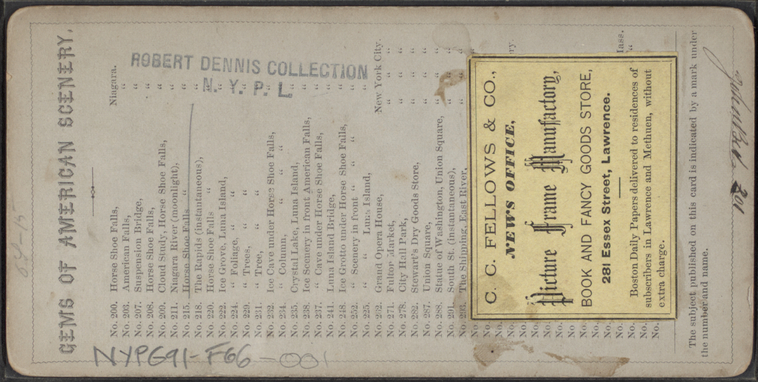 GEMS OF AMERICAN SCENERY.
No. 200. Horse Shoe Falls, Niagara.
No. 203. American Falls, "
No. 207. Suspension Bridge, "
No. 208. Horse Shoe Falls, "
No. 209. Cloud Study, Horse Shoe Falls, "
No. 211. Niagara River (moonlight), "
No. 215. Horse Shoe Falls "
No. 218. The Rapids (instantaneous),
No. 220. Horse Shoe Falls "
No. 222. Ice Grove, Luna Island,
No. 224. " Foliage, " "
No. 229. " Trees, " "
No. 231. " Tree, " "
No. 232. Ice Cave under Horse Shoe Falls,
No. 234. " Column, " "
No. 235. Crystal Lake, Luna Island,
No. 236. Ice Scenery in front American Falls,
No. 237. " Cave under Horse Shoe Falls,
No. 241. Luna Island Bridge,
No. 248. Ice Grotto under Horse Shoe Falls, "
No. 252. " Scenery in front " " "
No. " " Luna Island, "
No. 262. Grand Opera House, New York City.
No. 271. Fulton Market, " "
No. 278. City Hall Park, " "
No. 282. Stewart's Dry Goods Store, " "
No. 287. Union Square, " "
No. 288. Statue of Washington, Union Square, " "
No. 291. South St. (instantaneous), "
The Shipping, East River,
No.
No.
No.
No.
No.
No.
No.
No.
No.
No.
No.
No.
The subject published on this card is indicated by a mark under
the number and name.
ROBERT DENNIS COLLECTION
N. Y. P. L
C. C. FELLOWS & CO.,
NEWS OFFICE,
Picture Frame Manufactory,
BOOK AND FANCY GOODS STORE,
281 Essex Street, Lawrence.
Boston Daily Papers delivered to residences of
subscribers in Lawrence and Methuen, without
extra charge.
NYPG91-F66-001